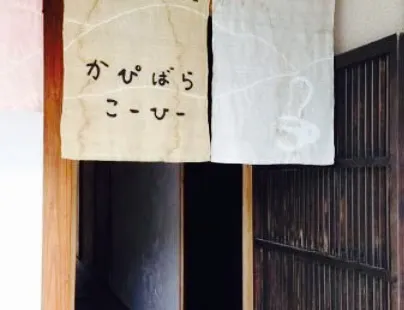 かぴばら
こーひー